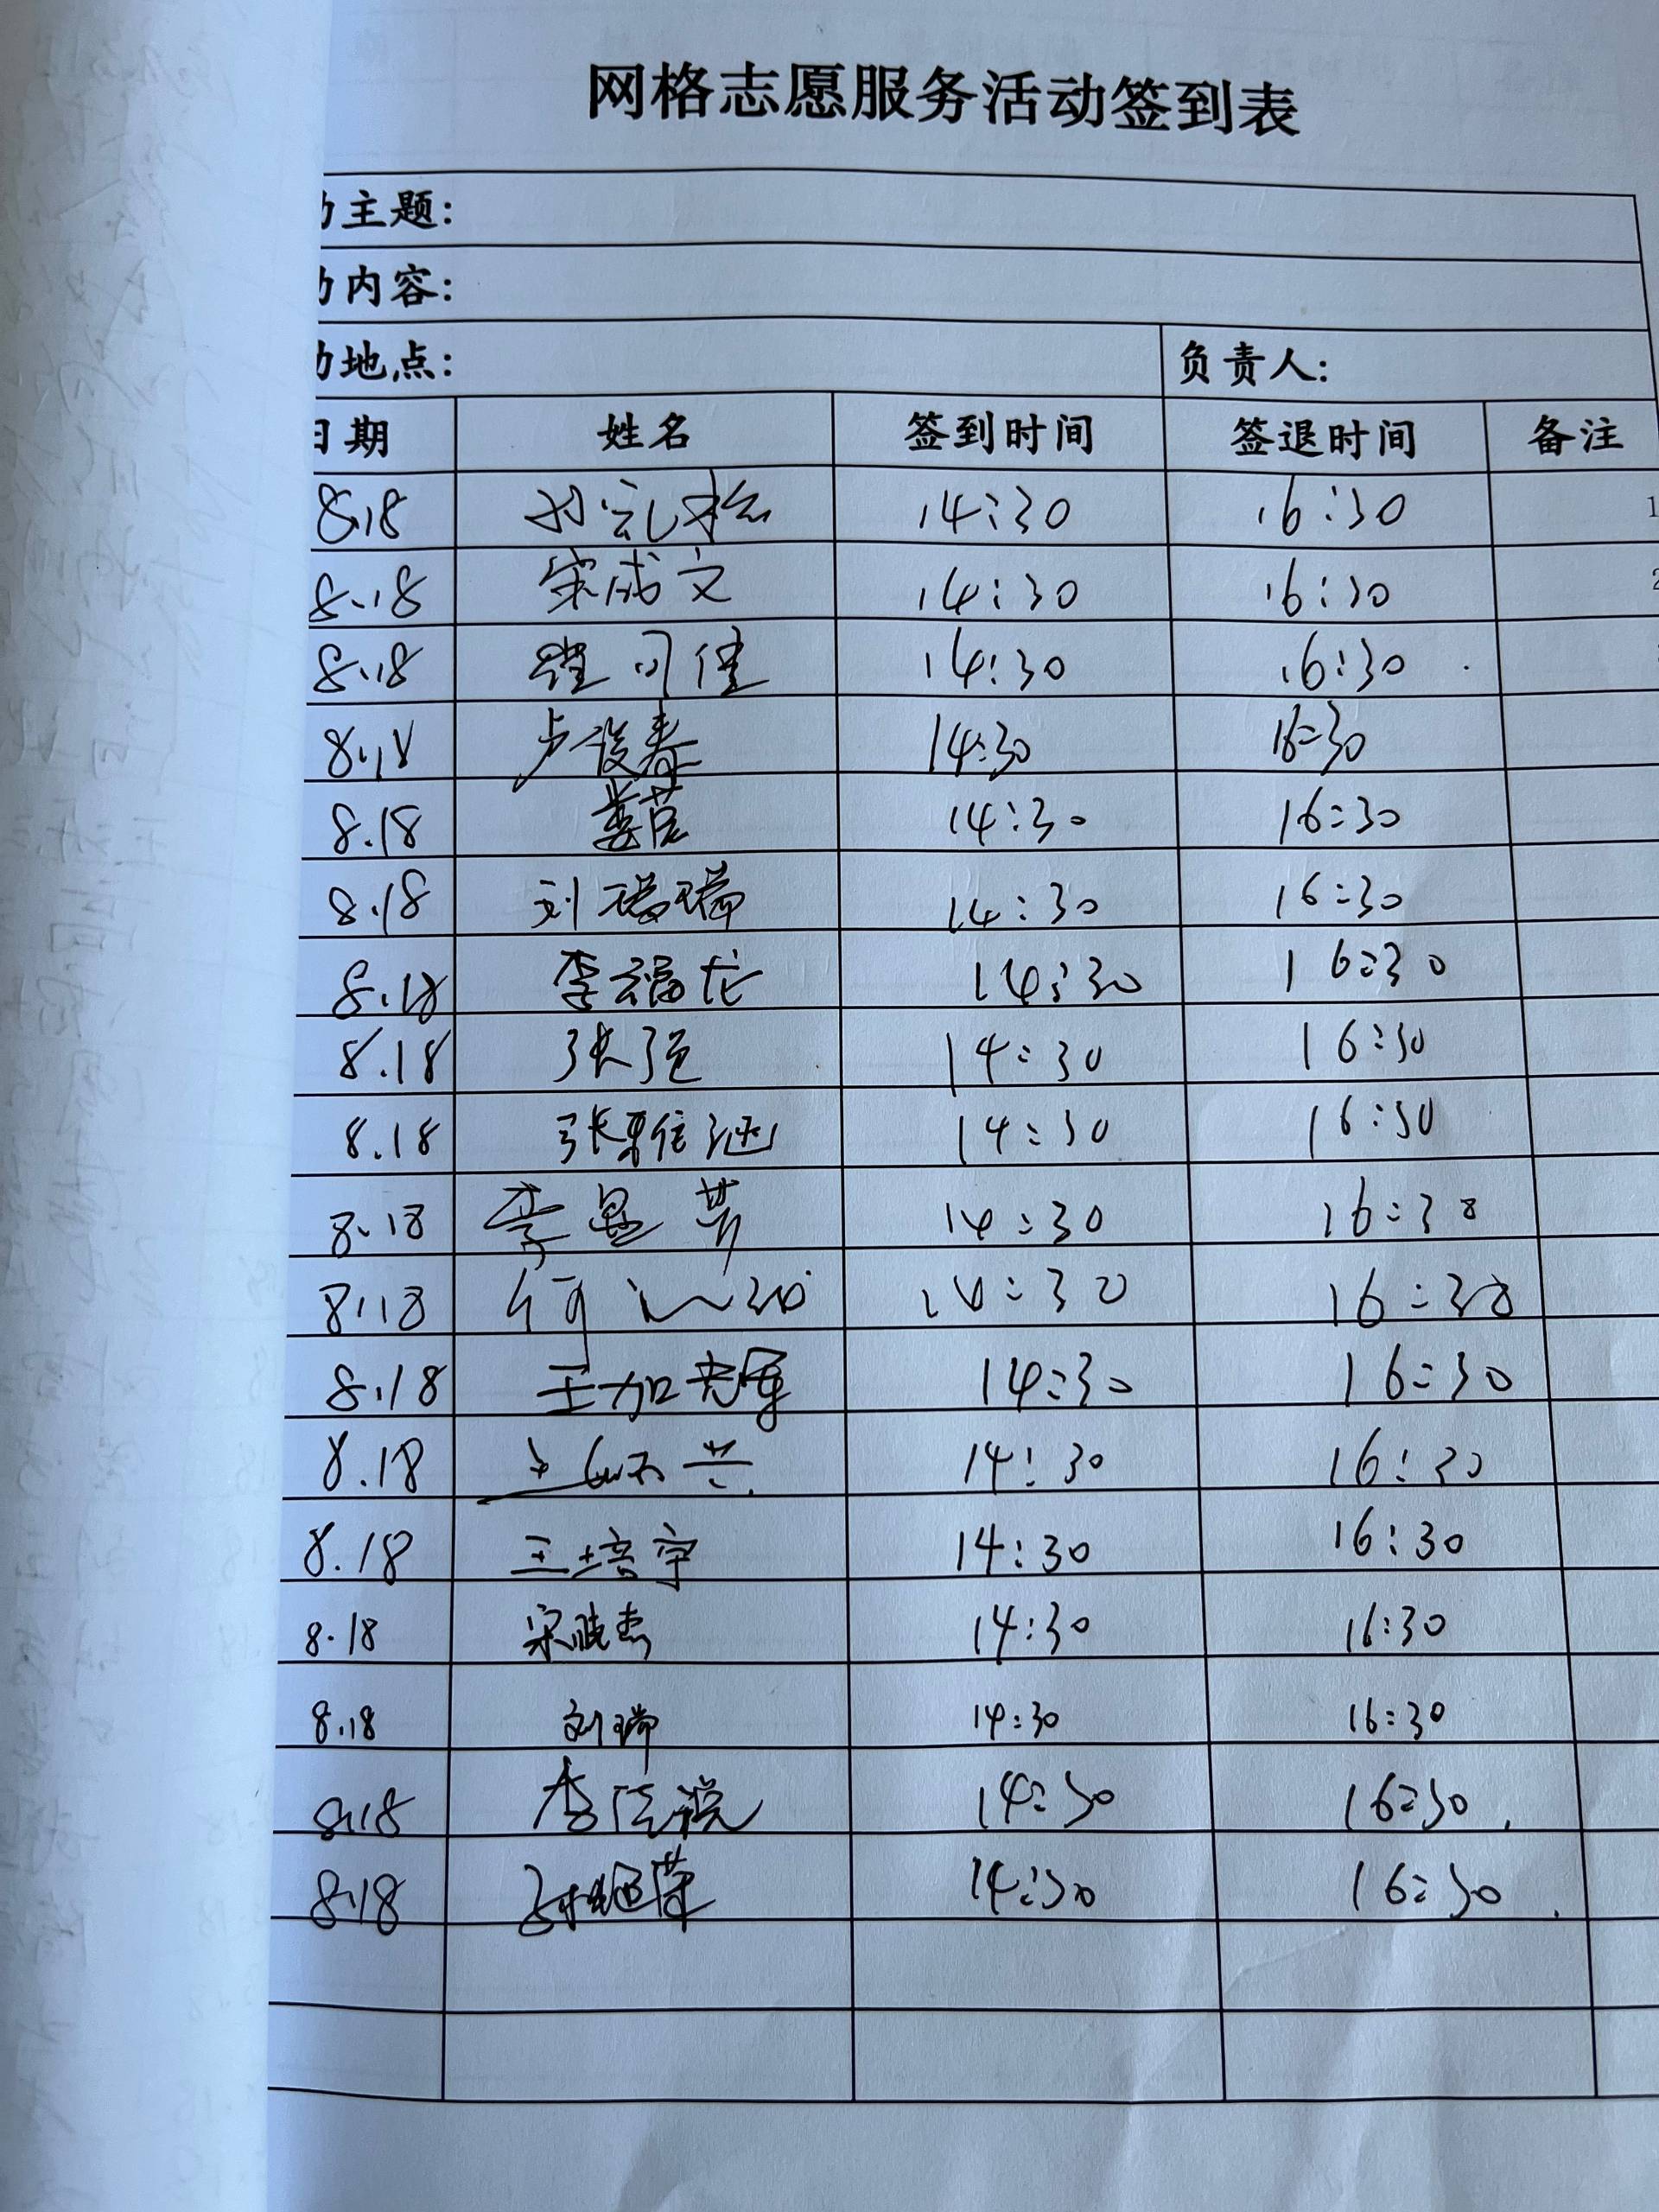 网格志愿服务活动签到表
动主题:
动内容:
动地点: 负责人:
日期 姓名 签到时间 签退时间 备注
8.18 14:30 16:30 1
8.18 宋成文 14:30 16:30 2
8.18 可佳 14:30 16:30
8.18 卢俊春 14:30 16:30
8.18 娄莹 14:30 16:30
8.18 刘瑞瑞 14:30 16:30
8.18 李福龙 14:30 16:30
8.18 张强 14:30 16:30
8.18 张 14:30 16:30
8.18 李显芳 14:30 16:30
8.18 何 14:30 16:30
8.18 王加 14:30 16:30
8.18 14:30 16:30
8.18 王培宇 14:30 16:30
8.18 宋晓杰 14:30 16:30
8.18 刘瑞 14:30 16:30
8.18 李 14:30 16:30
8.18 14:30 16:30